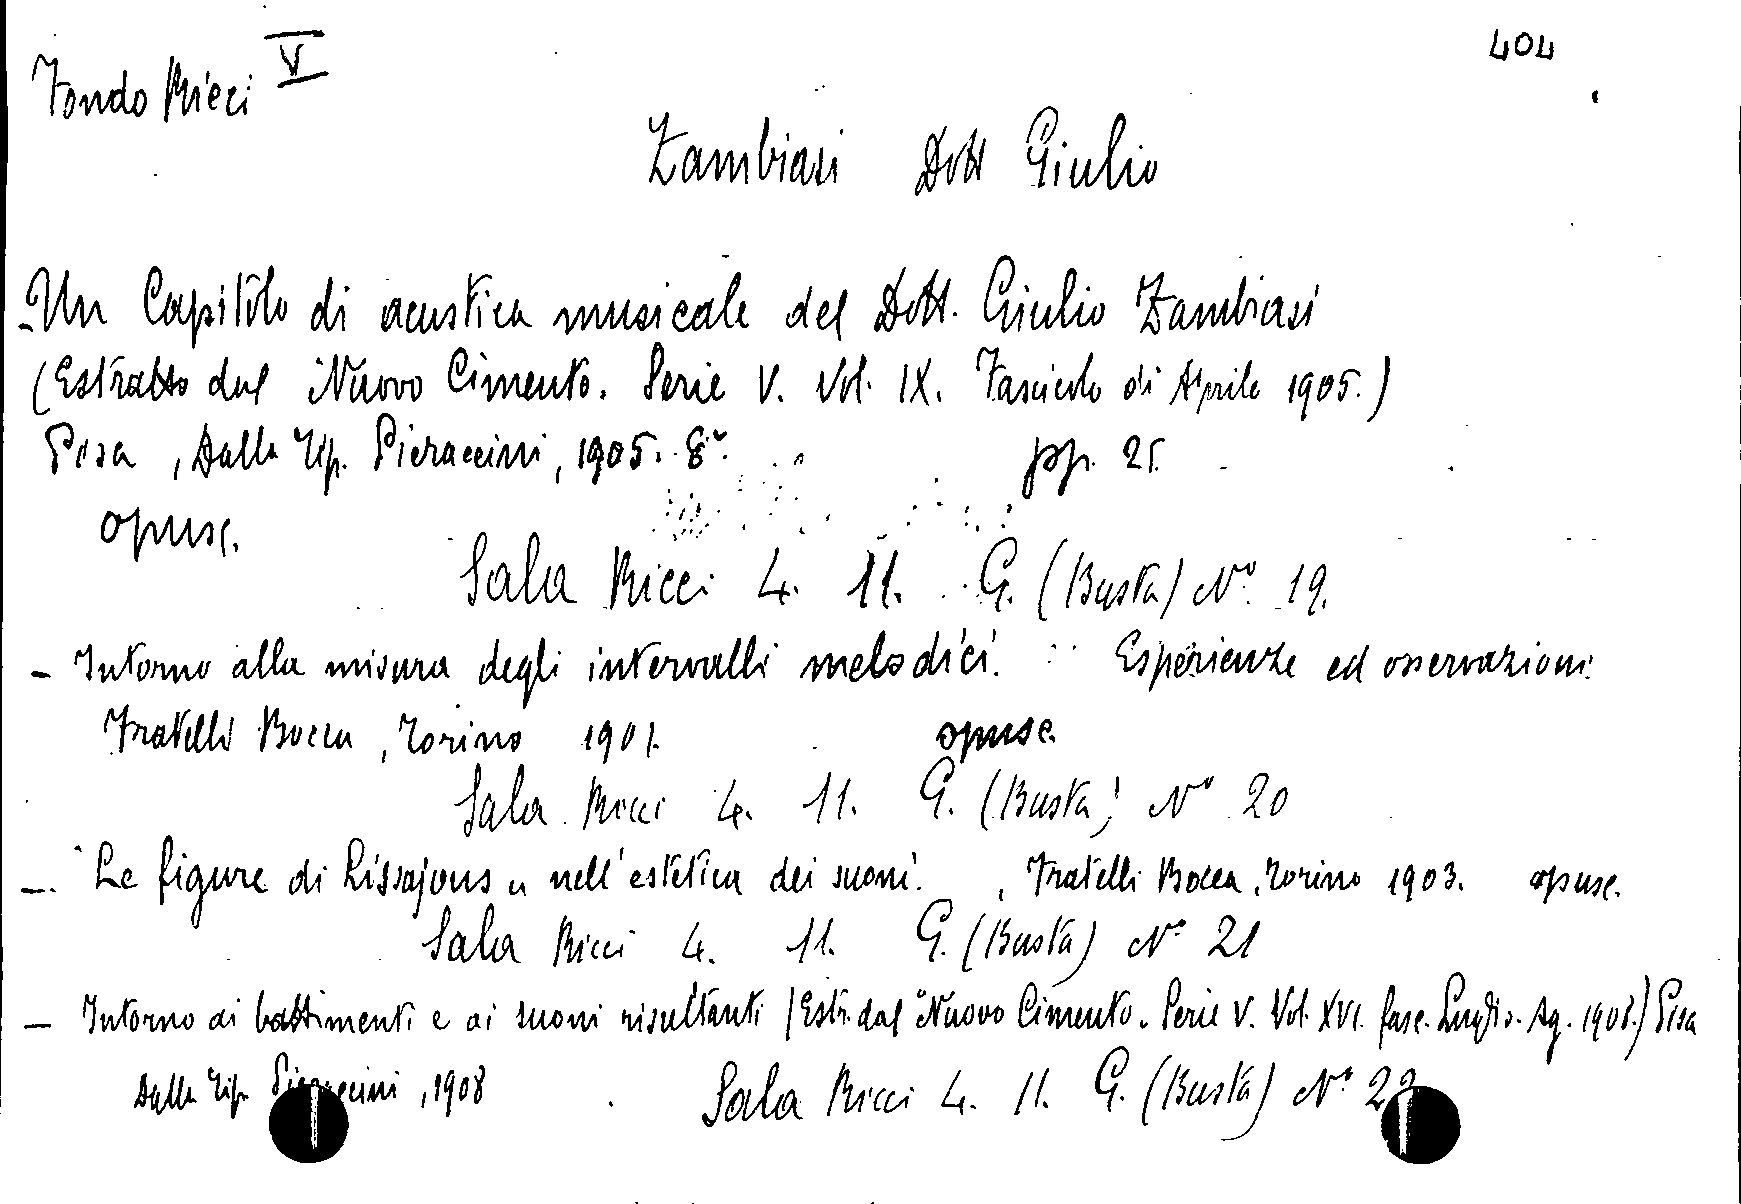 Fondo Ricci V
404
Zambiasi Dott Giulio
- Un Capitolo di acustica musicale del Dott. Giulio Zambiasi
(Estratto dal Nuovo Cimento. Serie V. Vol. IX. Fascicolo di Aprile 1905.)
Pisa, Dalla Tip. Pieraccini, 1905. 8º. pp. 25.
opusc.
Sala Ricci 4. 11. G. (Busta) Nº 19.
- Intorno alla misura degli intervalli melodici. Esperienze ed osservazioni.
Fratelli Bocca, Torino 1901. opusc.
Sala Ricci 4. 11. G. (Busta) Nº 20
- Le figure di Lissajous nell'estetica dei suoni. , Fratelli Bocca, Torino 1903. opusc.
Sala Ricci 4. 11. G. (Busta) Nº 21
- Intorno ai battimenti e ai suoni risultanti (Estr. dal Nuovo Cimento. Serie V. Vol. XVI. fasc. Luglio. Ag. 1908.) Pisa
Dalla Tip. Pieraccini, 1908 Sala Ricci 4. 11. G. (Busta) Nº 22